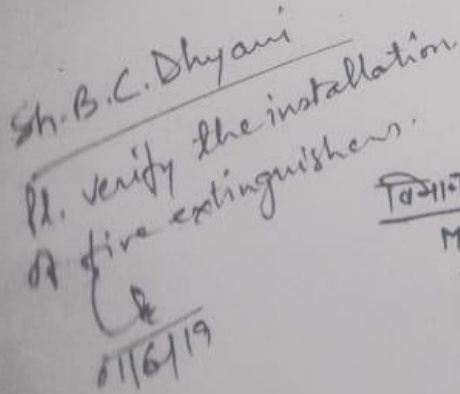 Sh. B. C. Dhyani
Pl. verify the installation
of fire extinguishers.
01/6/19